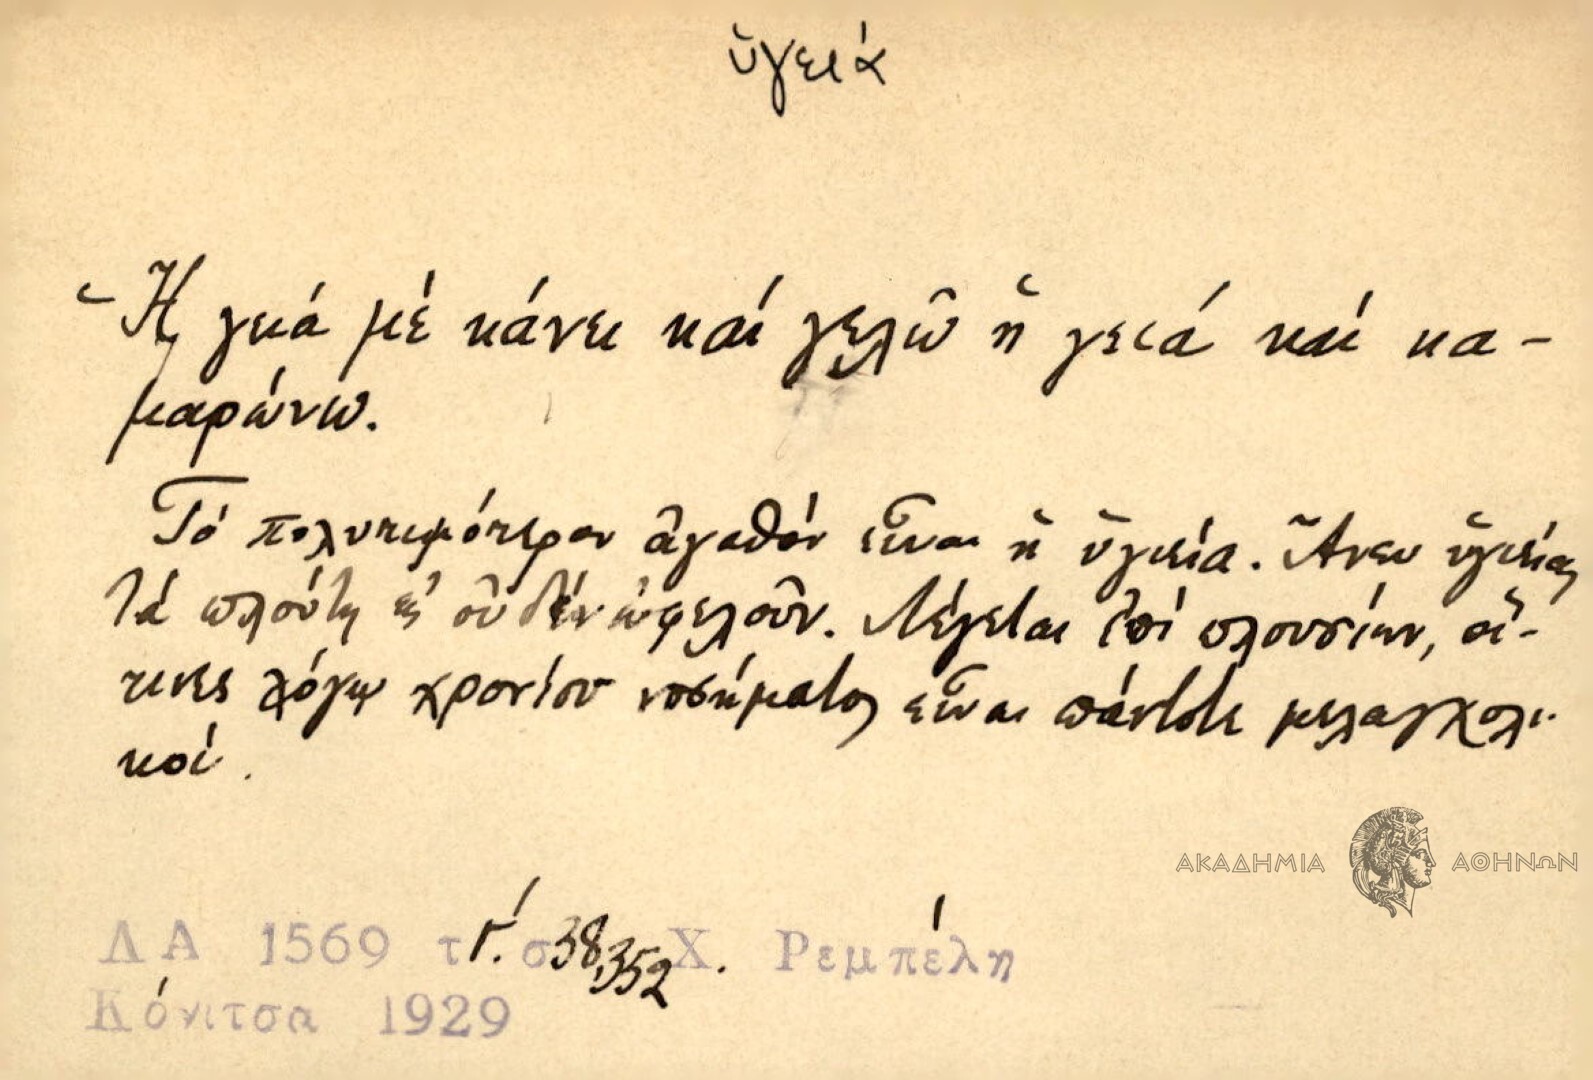 ὑγειά
Ἡ γειά μέ κάνει καί γελῶ ἡ γειά καί κα-
μαρώνω.
Τό πολυτιμότερον ἀγαθόν εἶναι ἡ ὑγιεία. Ἄνευ ὑγιείας
τά πλούτη οὐδέν ὠφελοῦν. Λέγεται ἐπί πλουσίων, οἵ-
τινες λόγῳ χρονίου νοσήματος εἶναι πάντοτε μελαγχολι-
κοί.
ΑΚΑΔΗΜΙΑ ΑΘΗΝΩΝ
ΛΑ 1569 τ Γ΄. σ 38,352 Χ. Ρεμπέλη
Κόνιτσα 1929